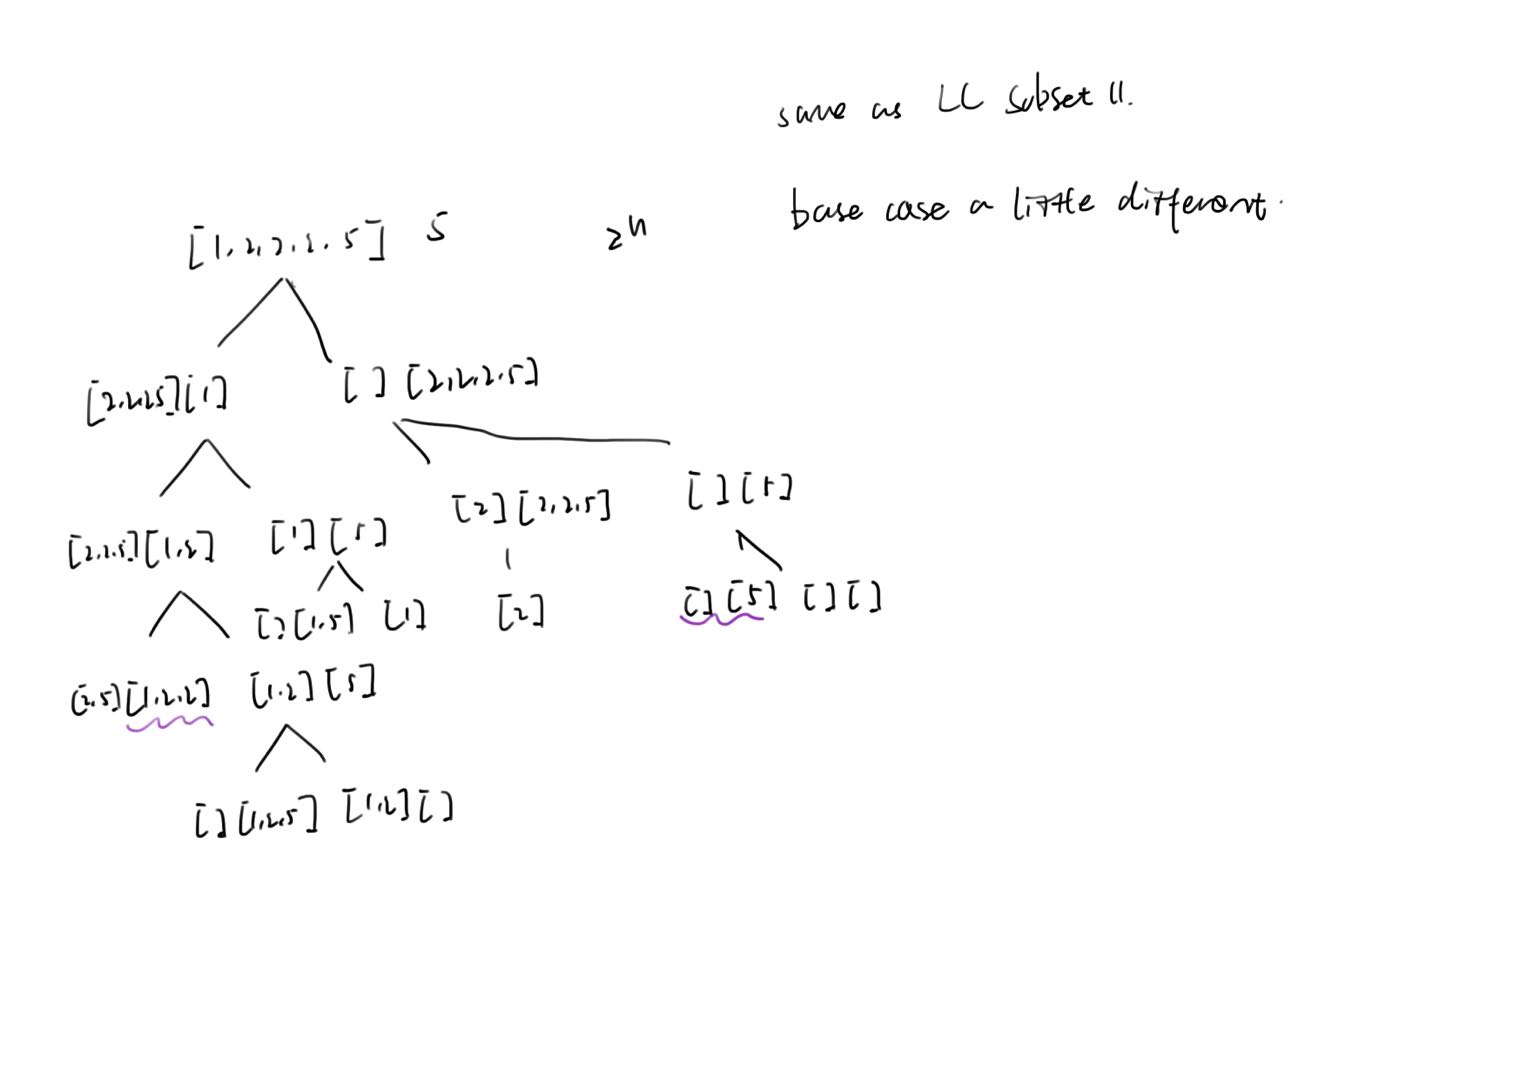 same as LC subset II.
base case a little different.
[1,2,2,2,5] 5 2^n
[2,2,2,5][1] [ ] [2,2,2,5]
[2,2,5][1,2] [1] [5] [2] [2,2,5] [ ] [5]
[ ] [1,5] [1] [2] [ ] [5] [ ] [ ]
[2,5] [1,2,2] [1,2] [5]
[ ] [1,2,5] [1,2] [ ]